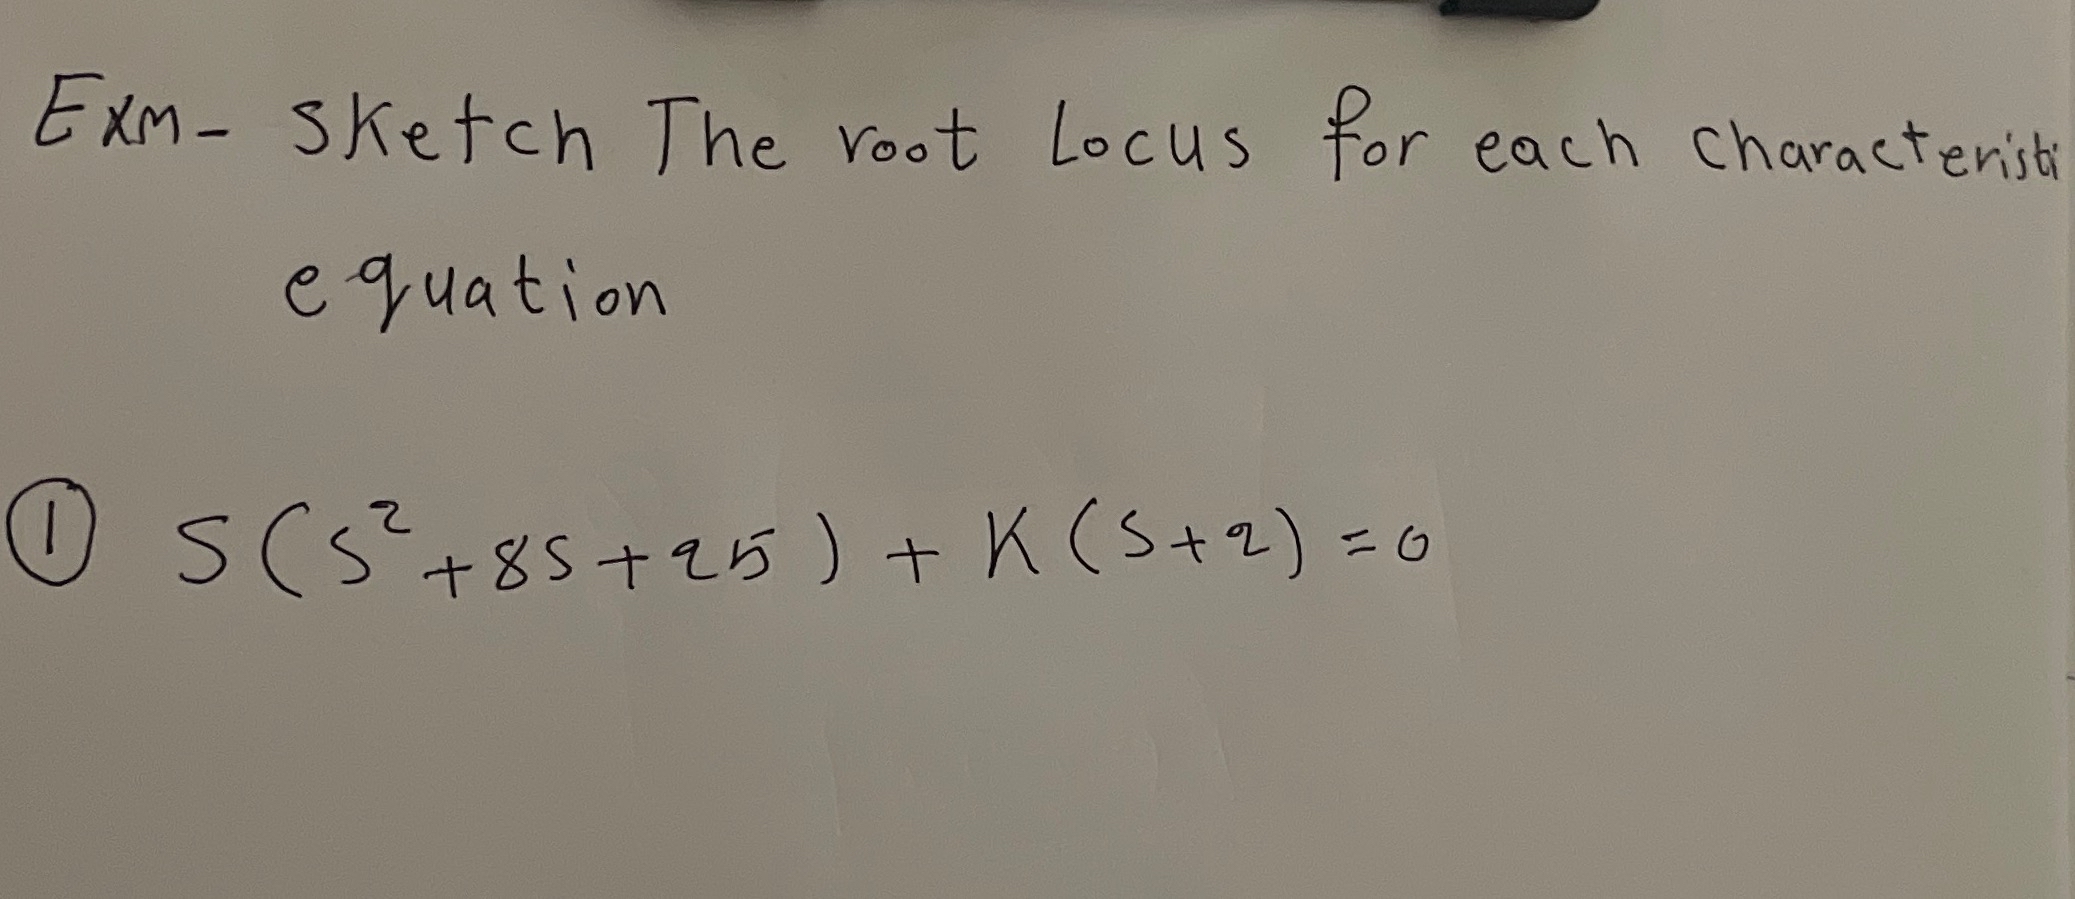 Exm- sketch The root Locus for each characteristi
equation
① S(S²+8S+25)+K(S+2)=0